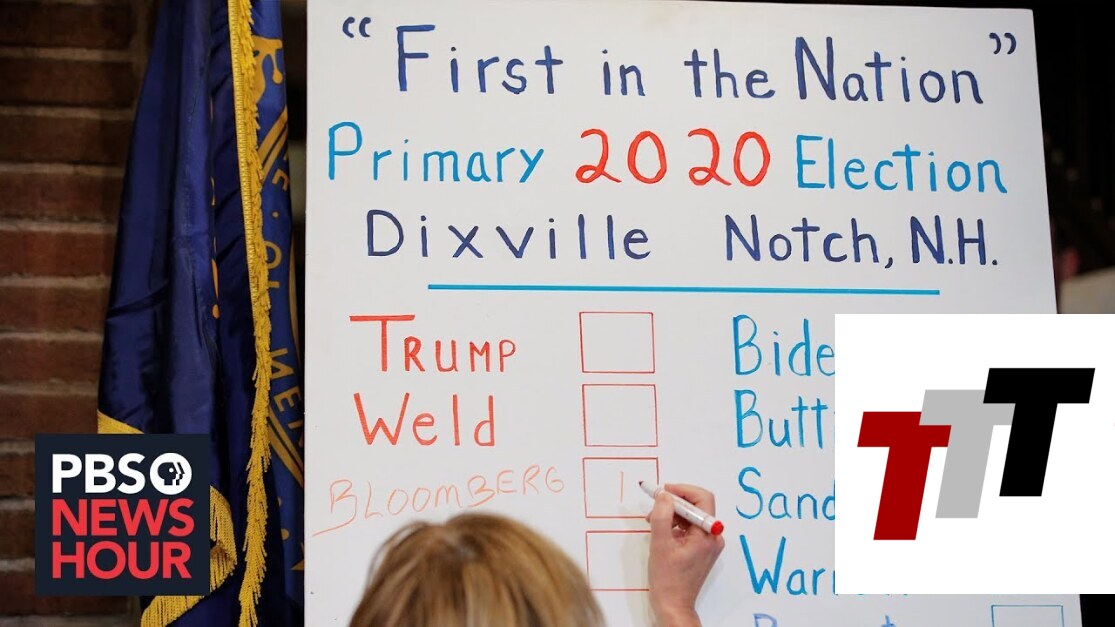 “First in the Nation”
Primary 2020 Election
Dixville Notch, N.H.
TRUMP
Weld
BLOOMBERG 1
Bide
Butt
Sand
War
PBS
NEWS
HOUR
TTT